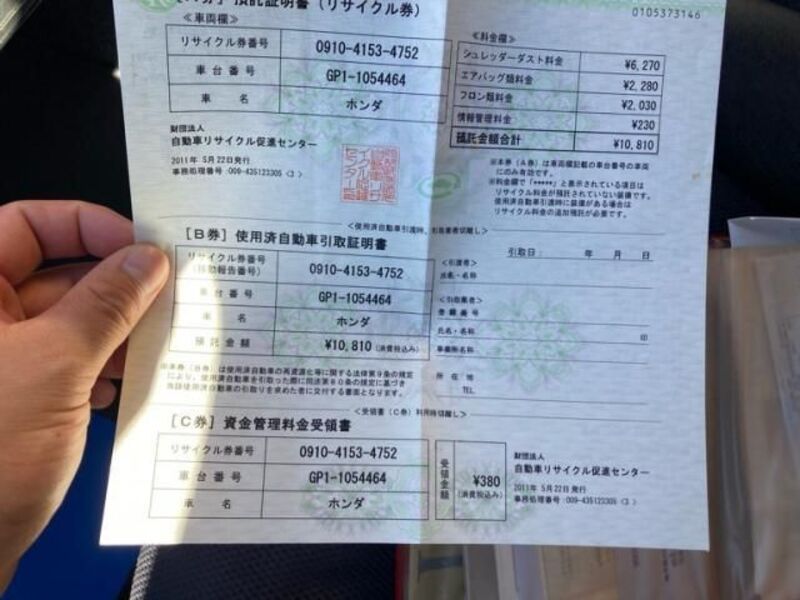 預託証明書（リサイクル券）
0105373146
≪車両欄≫
リサイクル券番号 0910-4153-4752
車台番号 GP1-1054464
車名 ホンダ
≪料金欄≫
シュレッダーダスト料金 ¥6,270
エアバッグ類料金 ¥2,280
フロン類料金 ¥2,030
情報管理料金 ¥230
預託金額合計 ¥10,810
財団法人
自動車リサイクル促進センター
2011年 5月22日発行
事務処理番号:009-435123305〈3〉
※本券（A券）は車両欄記載の車台番号の車両
にのみ有効です。
※料金欄で「*****」と表示されている項目は
リサイクル料金が預託されていない装備です。
使用済自動車引渡時に装備がある場合は
リサイクル料金の追加預託が必要です。
＜使用済自動車引渡時、引取業者切離し＞
［B券］使用済自動車引取証明書
リサイクル券番号
（移動報告番号） 0910-4153-4752
車台番号 GP1-1054464
車名 ホンダ
預託金額 ¥10,810（消費税込み）
引取日： 年 月 日
＜引渡者＞
氏名・名称
＜引取業者＞
登録番号
氏名・名称 印
事業所名称
所在地
TEL
※本券（B券）は使用済自動車の再資源化等に関する法律第9条の規定
により、使用済自動車を引取った際に同法第80条の規定に基づき
当該使用済自動車の引取りを求めた者に交付する書面となります。
＜受領書（C券）利用時切離し＞
［C券］資金管理料金受領書
リサイクル券番号 0910-4153-4752
車台番号 GP1-1054464
車名 ホンダ
受領金額 ¥380
（消費税込み）
財団法人
自動車リサイクル促進センター
2011年 5月22日発行
事務処理番号:009-435123305〈3〉